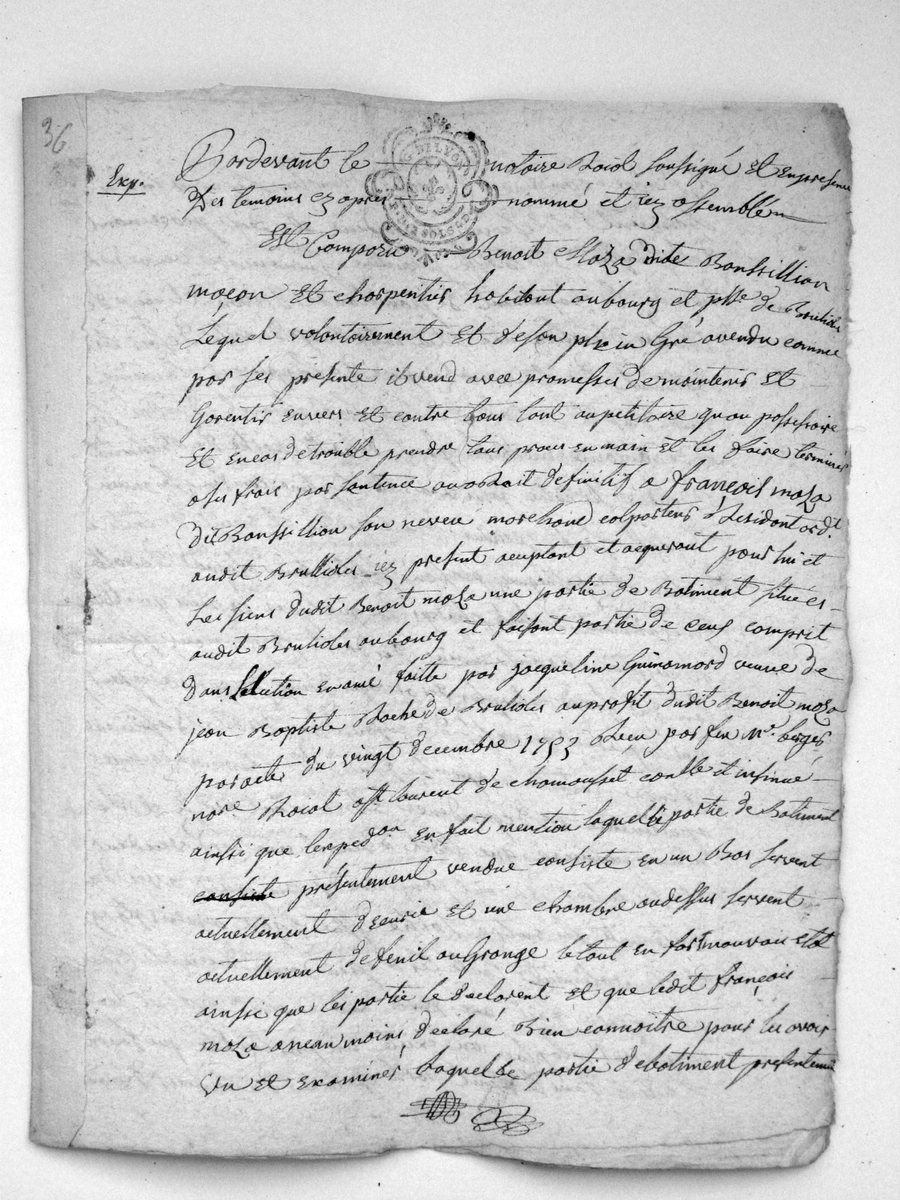 36
Exp.
G. DE LYON
DIX SOLS
Pardevant le notaire Royal soussigné et en presence
des temoins cy apres nommé et icy assemblé
Est Comparu Benoit Maza dite Bonssillion
maçon et charpentier habitant au bourg et psse de Brulioles
Lequel volontairement et de son plein Gré a vendu comme
par ses présente il vend avec promesses de maintenir et
Garentir envers et contre tous tant au petitoire quau possessoire
et en cas de trouble prendre tous proces en main et les faire terminer
a ses frais par sentence ou arrait definitif a françois maza
dit Bonssillion son neveu marchand colporteur Residant ord.t
audit Brullioles icy present aceptant et aquerant pour lui et
Les siens dudit Benoit maza une partie de Batiment situé es
audit Brulioles au bourg et faisant partie de ceus comprit
dans en faitte par jacqueline Guinamard veuve de
jean Baptiste Roche de Brulioles au profit dudit Benoit maza
par acte du vingt decembre 1753 Recu par feu Mr. berger
nore Royal à St laurent de chamousset conllé et insinué
ainsi que lexped.on en fait mention laquelle partie de Batiment
consiste présentement vendue consiste en un Bas servent
actuellement decurie et une chambre au dessus servent
actuellement de fenil ou Grange le tout en fort mauvais etat
ainsi que les partie le declarent et que ledit françois
maza a neanmoins declaré Bien connoitre pour les avoir
vu et examinés Laquelle partie de batiment presentemen